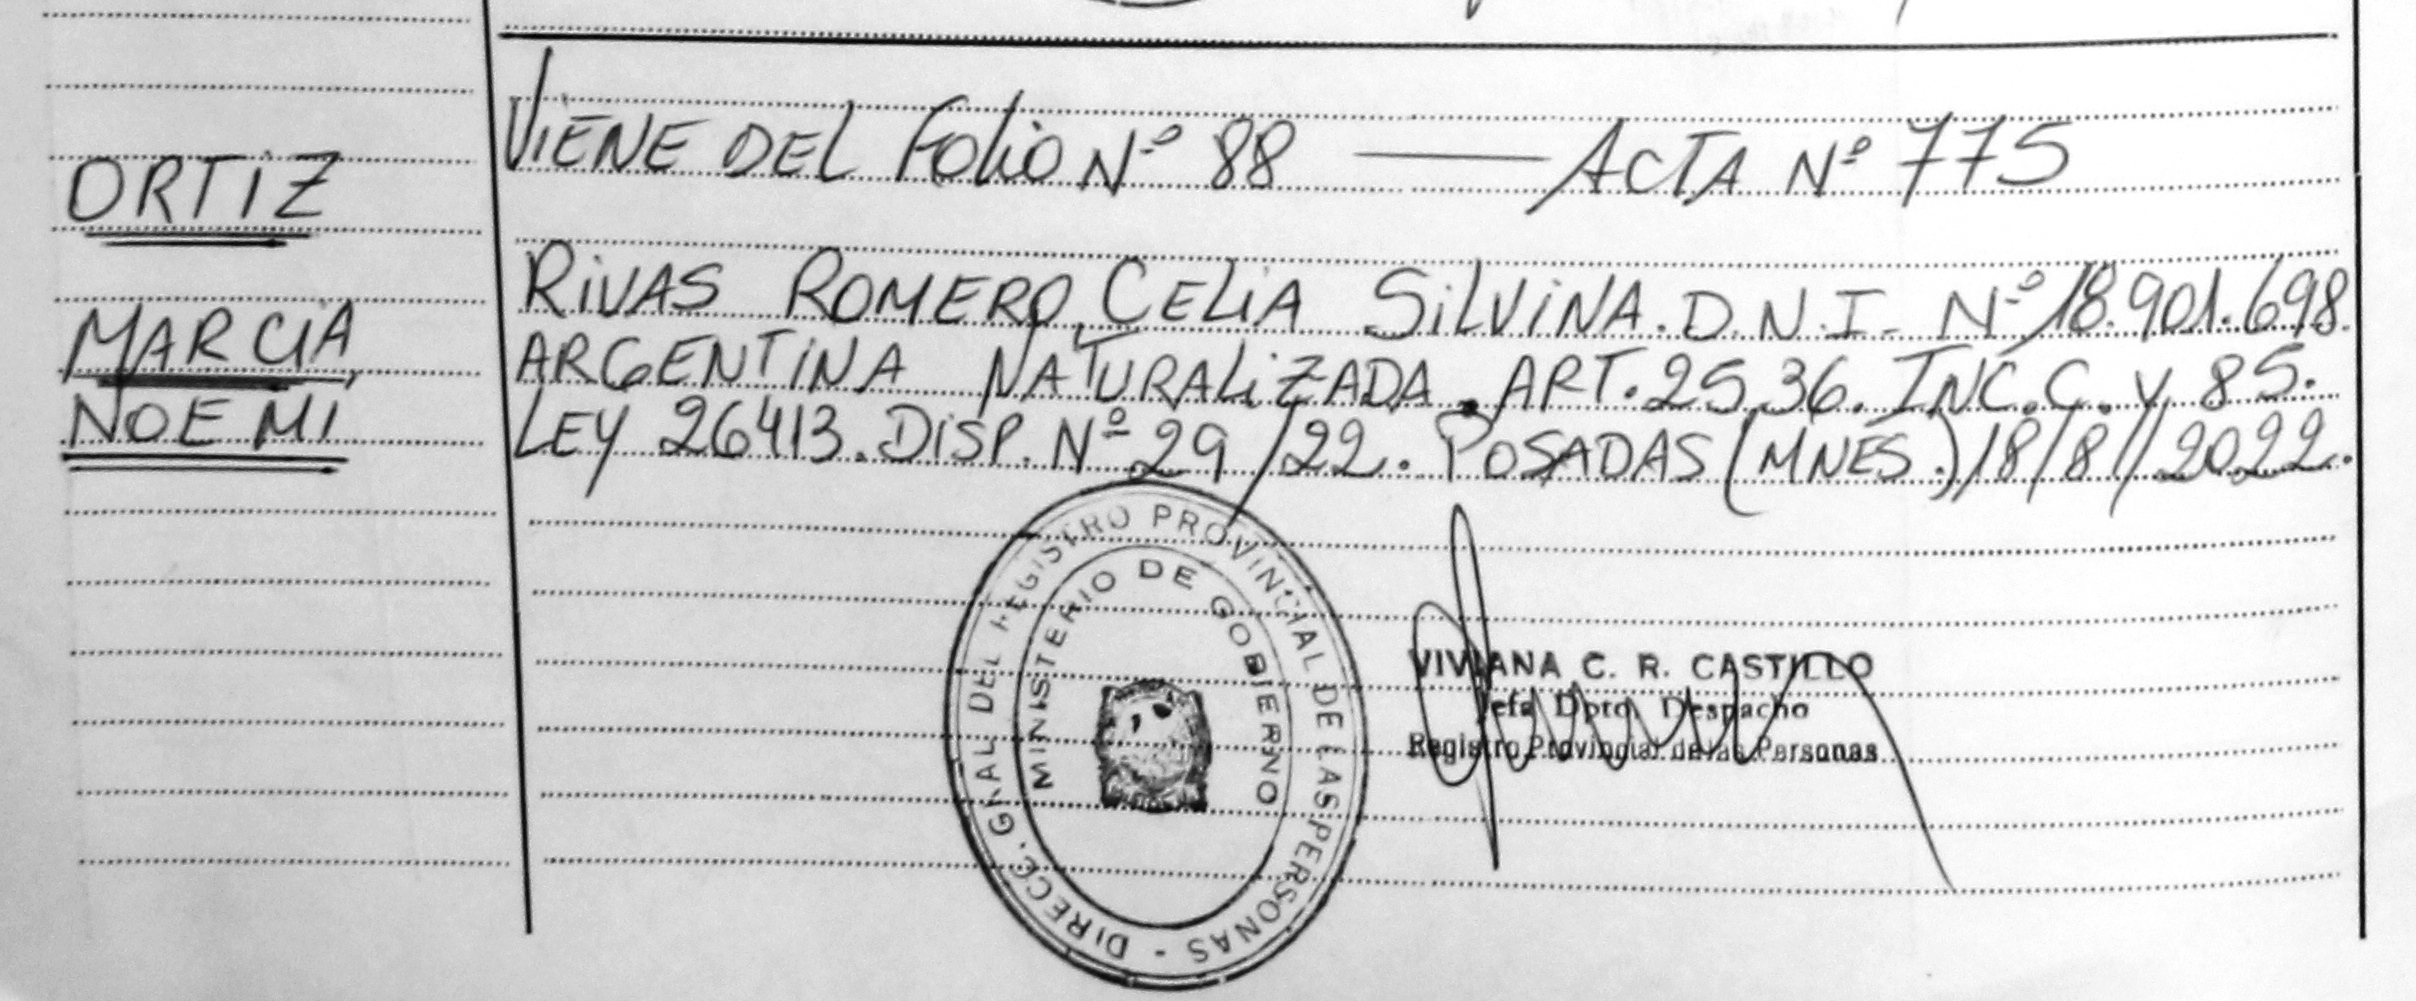 ORTIZ
MARCIA,
NOEMI
VIENE DEL FOLIO Nº 88 —— ACTA Nº 775
RIVAS ROMERO, CELIA SILVINA. D.N.I. Nº 18.901.698.
ARGENTINA NATURALIZADA. ART. 25, 36. INC. C. y 85.
LEY 26413. DISP. Nº 29/22. POSADAS (MNES.) 18/8/2022.
DIRECC. GRAL DEL REGISTRO PROVINCIAL DE LAS PERSONAS -
MINISTERIO DE GOBIERNO
VIVIANA C. R. CASTILLO
Jefa Dpto. Despacho
Registro Provincial de las Personas